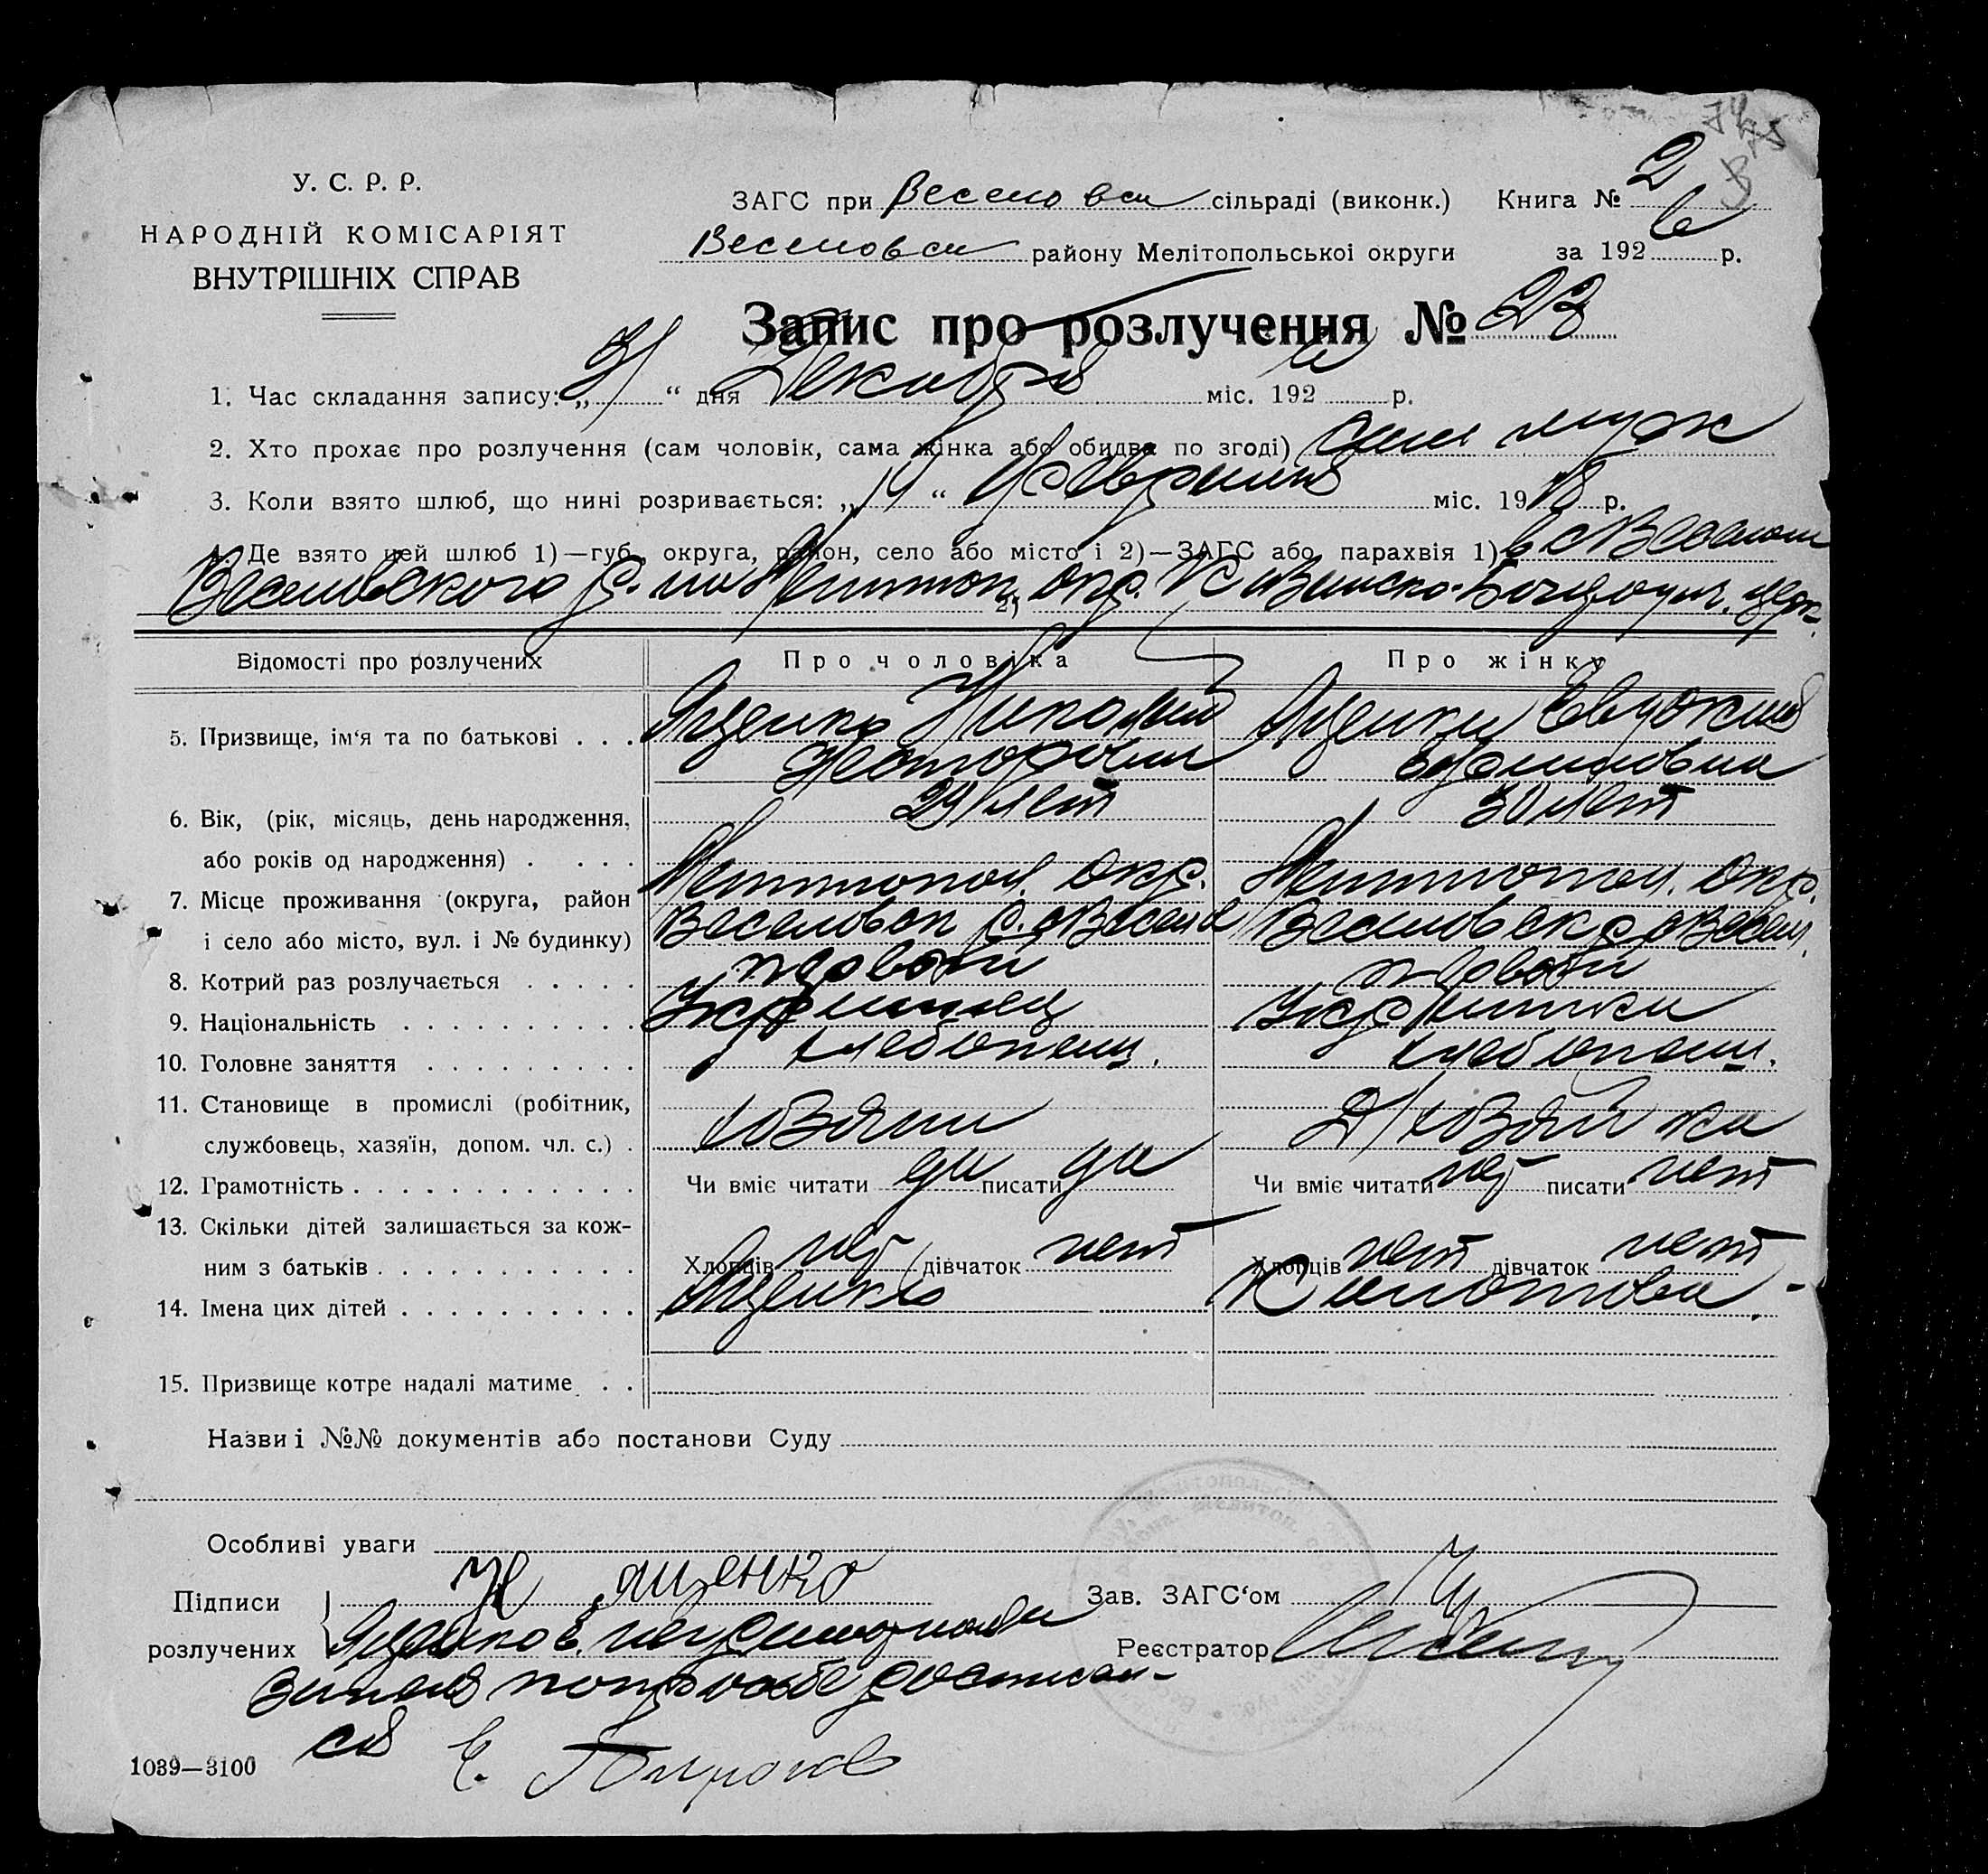 У. С. Р. Р.
НАРОДНІЙ КОМІСАРІЯТ
ВНУТРІШНІХ СПРАВ
ЗАГС при Веселовск сільраді (виконк.) Книга № 2
Веселовск району Мелітопольської округи за 192 6 р.
Запис про розлучення № 23
1. Час складання запису: „ 31 “ дня Декабря міс. 192 6 р.
2. Хто прохає про розлучення (сам чоловік, сама жінка або обидва по згоді) сам муж
3. Коли взято шлюб, що нині розривається: „ 14 “ Февраля міс. 19 18 р.
4. Де взято цей шлюб 1)—губ., округа, район, село або місто і 2)—ЗАГС або парахвія 1) в с Веселом
Веселовского р. на Мелитоп окр. 2) Рожд. Богород. церк.
Відомості про розлучених Про чоловіка Про жінку
5. Призвище, ім‘я та по батькові . . . Яценко Николай Яценко Евдокия
Несторович
6. Вік, (рік, місяць, день народження, 29 лет 30 лет
або років од народження) . . . .
7. Місце проживання (округа, район Мелитопол. окр. Мелитопол. окр.
і село або місто, вул. і № будинку) Веселовск р. с Веселое Веселовск р с Весел.
8. Котрий раз розлучається . . . . . первый первый
9. Національність . . . . . . . . . . Украинец Украинка
10. Головне заняття . . . . . . . . . хлебопаш. хлебопаш.
11. Становище в промислі (робітник,
службовець, хазяїн, допом. чл. с.) . хозяин Д/хозяйка
12. Грамотність . . . . . . . . . . . . Чи вміє читати да писати да Чи вміє читати нет писати нет
13. Скільки дітей залишається за кож-
ним з батьків . . . . . . . . . . . Хлопців нет дівчаток нет Хлопців нет дівчаток нет
14. Імена цих дітей . . . . . . . . . . Яценко
15. Призвище котре надалі матиме . .
Назви і №№ документів або постанови Суду
Особливі уваги
Підписи Н Яценко Зав. ЗАГС‘ом
розлучених Яценко Е. неграмотная Реєстратор
за нея по просьбе расписал-
ся Е.
1039—3100